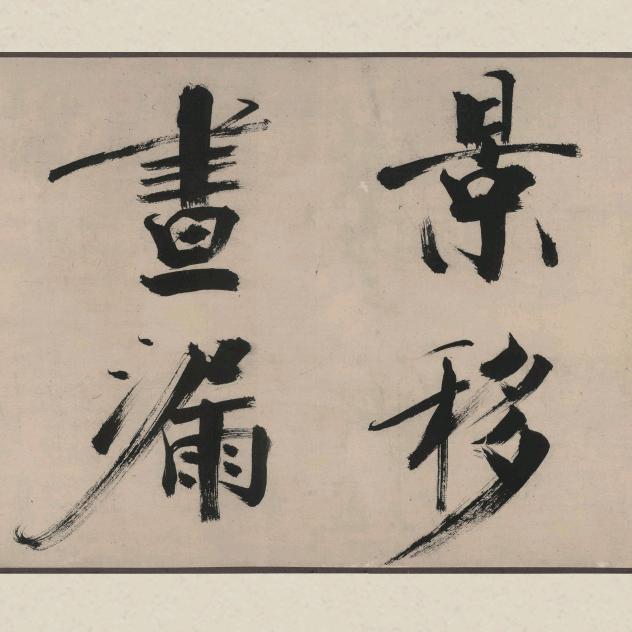 景移
晝漏